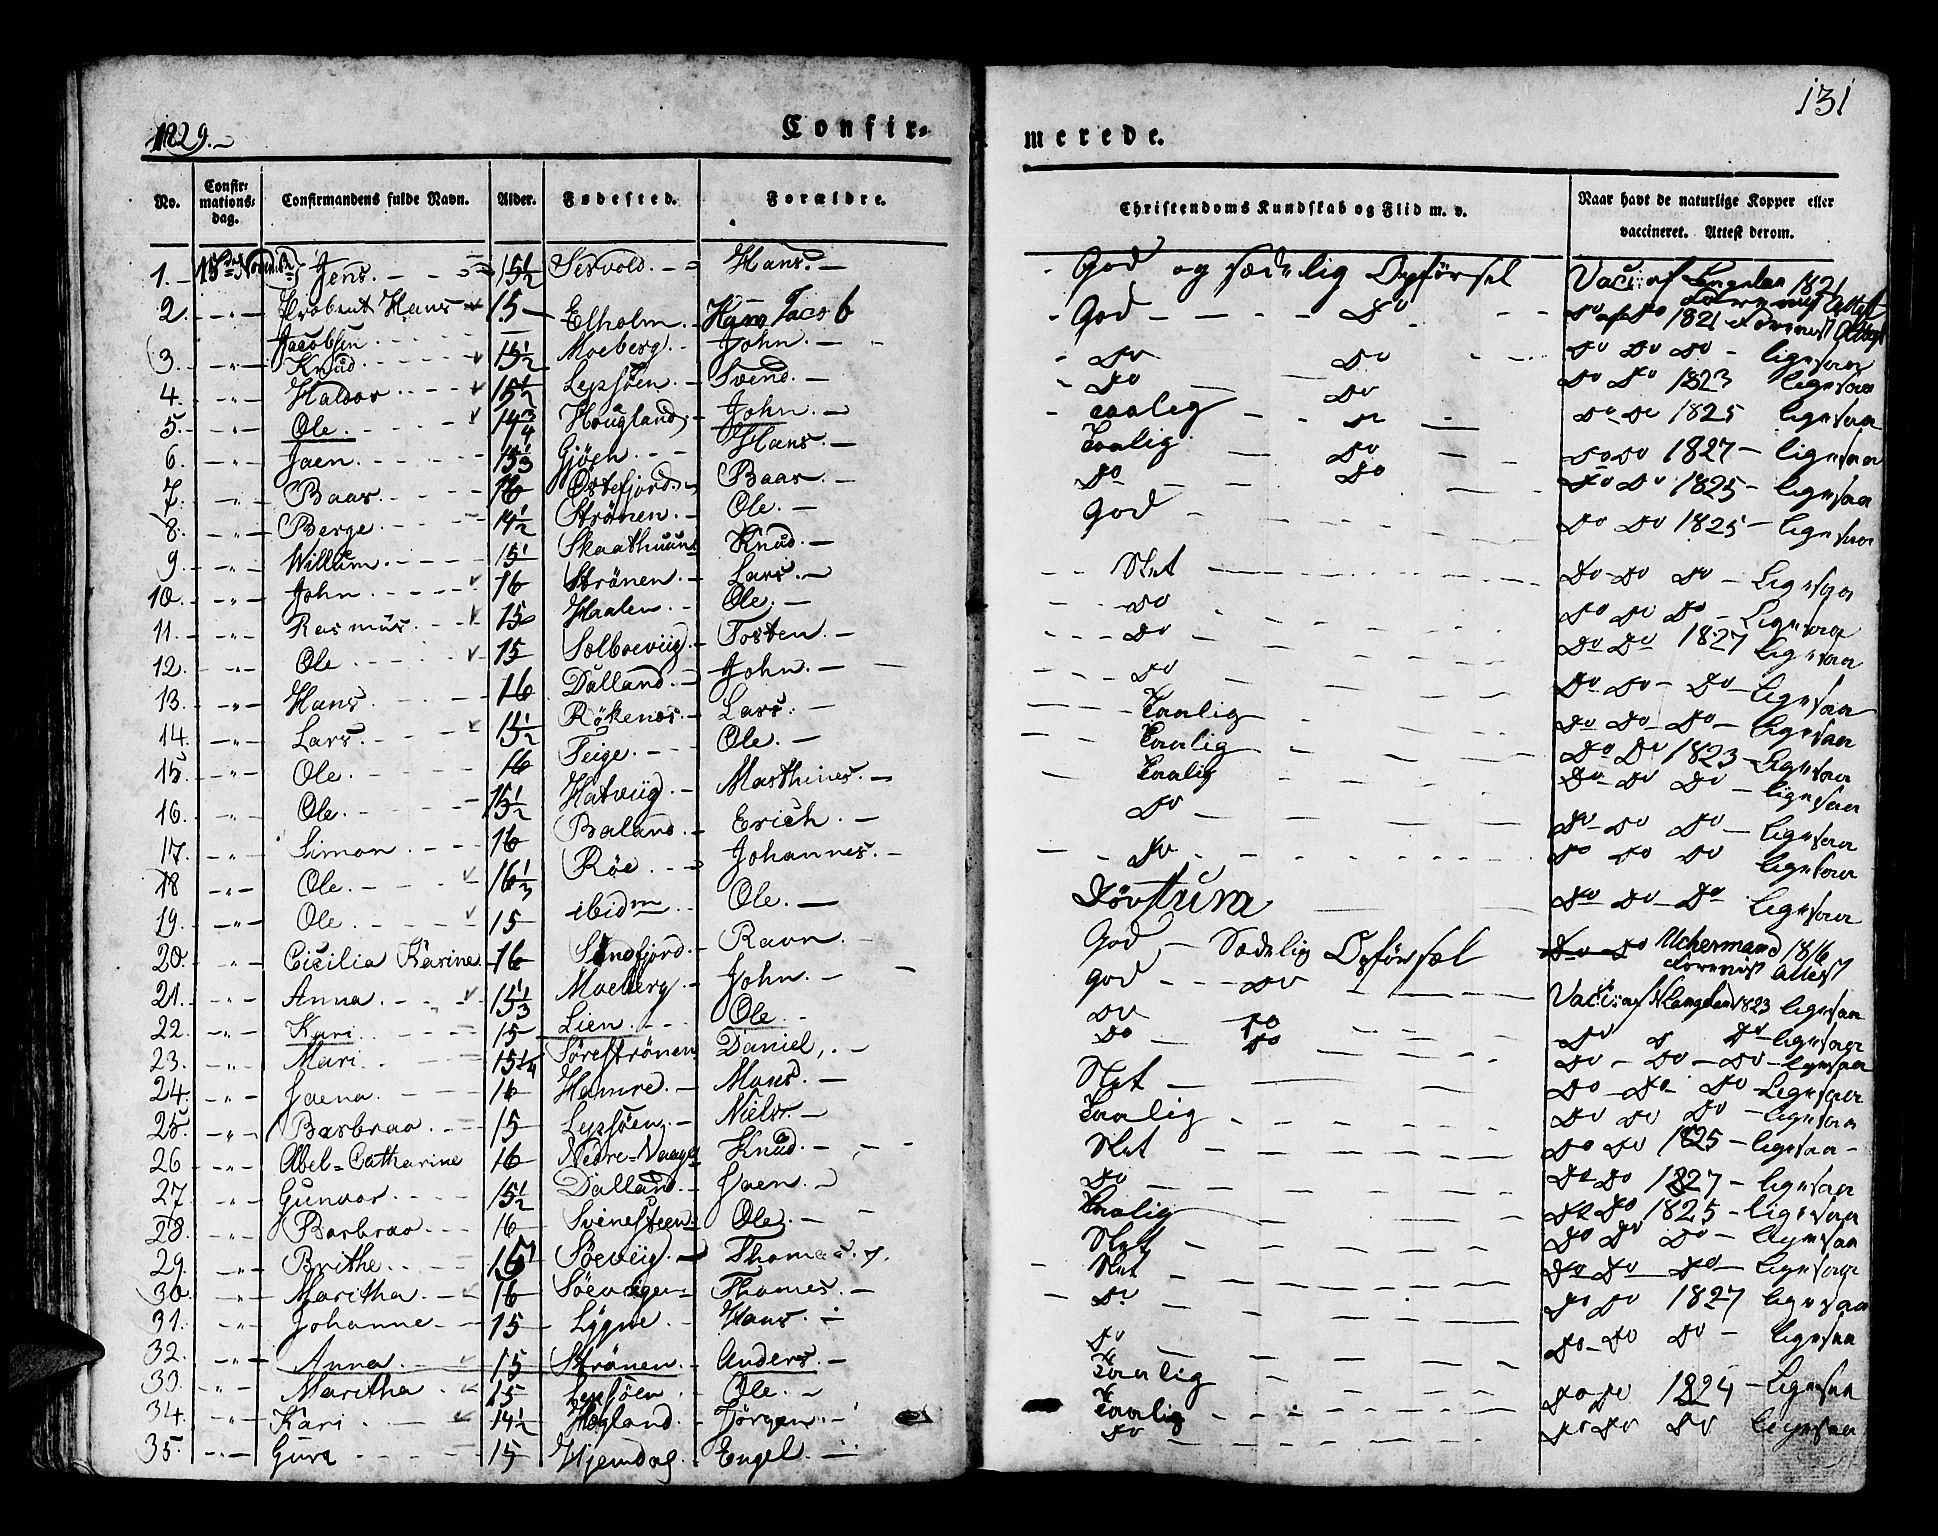 1829.
Confir-
merede.
131
No.
Confir-
mations-
dag.
Confirmandens fulde Navn.
Alder.
Fødested.
Forældre.
Christendoms Kundskab og Flid m. v.
Naar havt de naturlige Kopper eller
vaccineret. Attest derom.
1. 15de Jens. 15½ Hans. God og sædelig Opførsel 1821
2. Hans 15 Elholm. Hans Jacob God Do Do af Do 1821
Jacobsen
3. Knud. 15½ Moeberg. John. Do Do Do Do Do ligesaa
4. Haldor 15½ Lepsöen. Svend. Do Do Do Do 1823 ligesaa
5. Ole. 14¾ Hougland John. Taalig Do Do Do 1825 ligesaa
6. Jaen. 15⅓ Gjöen Hans. Taalig Do Do Do 1827 ligesaa
7. Baar. 16 Østefjord. Baar. Do Do Do Do 1825 ligesaa
8. Berge 14½ Strönen. Ole. God Do Do 1825 ligesaa
9. Willum. 15 Knud. Slet Do Do Do ligesaa
10. John. 16 Strönen. Lars. Do Do Do Do Ligesaa
11. Rasmus. 15 Haalen. Ole. Do Do Do 1827 ligesaa
12. Ole 15 Solbveviig. Tosten. Do Do Do Do ligesaa
13. Hans. 16 Dalland. John. Taalig Do Do Do ligesaa
14. Lars. 15½ Rökenes. Lars. Taalig Do Do 1823 Ligesaa
15. Ole. 16 Teige. Ole. Taalig Do Do Do ligesaa
16. Ole. 15½ Hatviig. Mathines. Do Do Do Do ligesaa
17. Simon. 16 Baland. Erich. Do Do Do Do ligesaa
18. Ole. 16⅓ Röe. Johannes. Do Do Do ligesaa
19. Ole. 15 ibidm. Ole.
20. Cicilia Karine. 16 Sundfjord. Ravn. God Sædelig Opförsel 1816 Attest
21. Anna. 15⅓ Moeberg. John. God Do 1823 ligesaa
22. Kari. 15 Lien. Ole. Do Do Do ligesaa
23. Mari. 15¼ Söreströnen Daniel. Do Do Do Do Do ligesaa
24. Jaena. 16 Hamre. Mons. Slet Do Do Do Ligesaa
25. Barbraa. 15 Lepsöen. Niels. Taalig Do Do Do ligesaa
26 Abel-Catharine 16 Nedre-Vaage Knud. Slet Do Do 1825 ligesaa
27. Gunvor. 15½ Dalland. Jaen. Do Do Do 1827 ligesaa
28. Barbraa. 16 Svinesteen Ole. Taalig Do Do 1825 ligesaa
29. Brithe. 15 Söeviig. Thomas. Slet Do Do Do ligesaa
30. Maritha. 16 Söevigen Thomes. Slet Do Do Do ligesaa
31. Johanne. 15 Lygne. Hans. Do Do Do 1827 ligesaa
32. Anna. 15 Strönen. Anders. Do Do Do Do ligesaa
33. Maritha. 15 Lepsöen. Ole. Taalig Do Do 1824 Ligesaa
34. Kari. 14½ Hogland. Jörgen. Taalig Do Do Do ligesaa
35. Guro 15 Hjemdag. Engel. Do